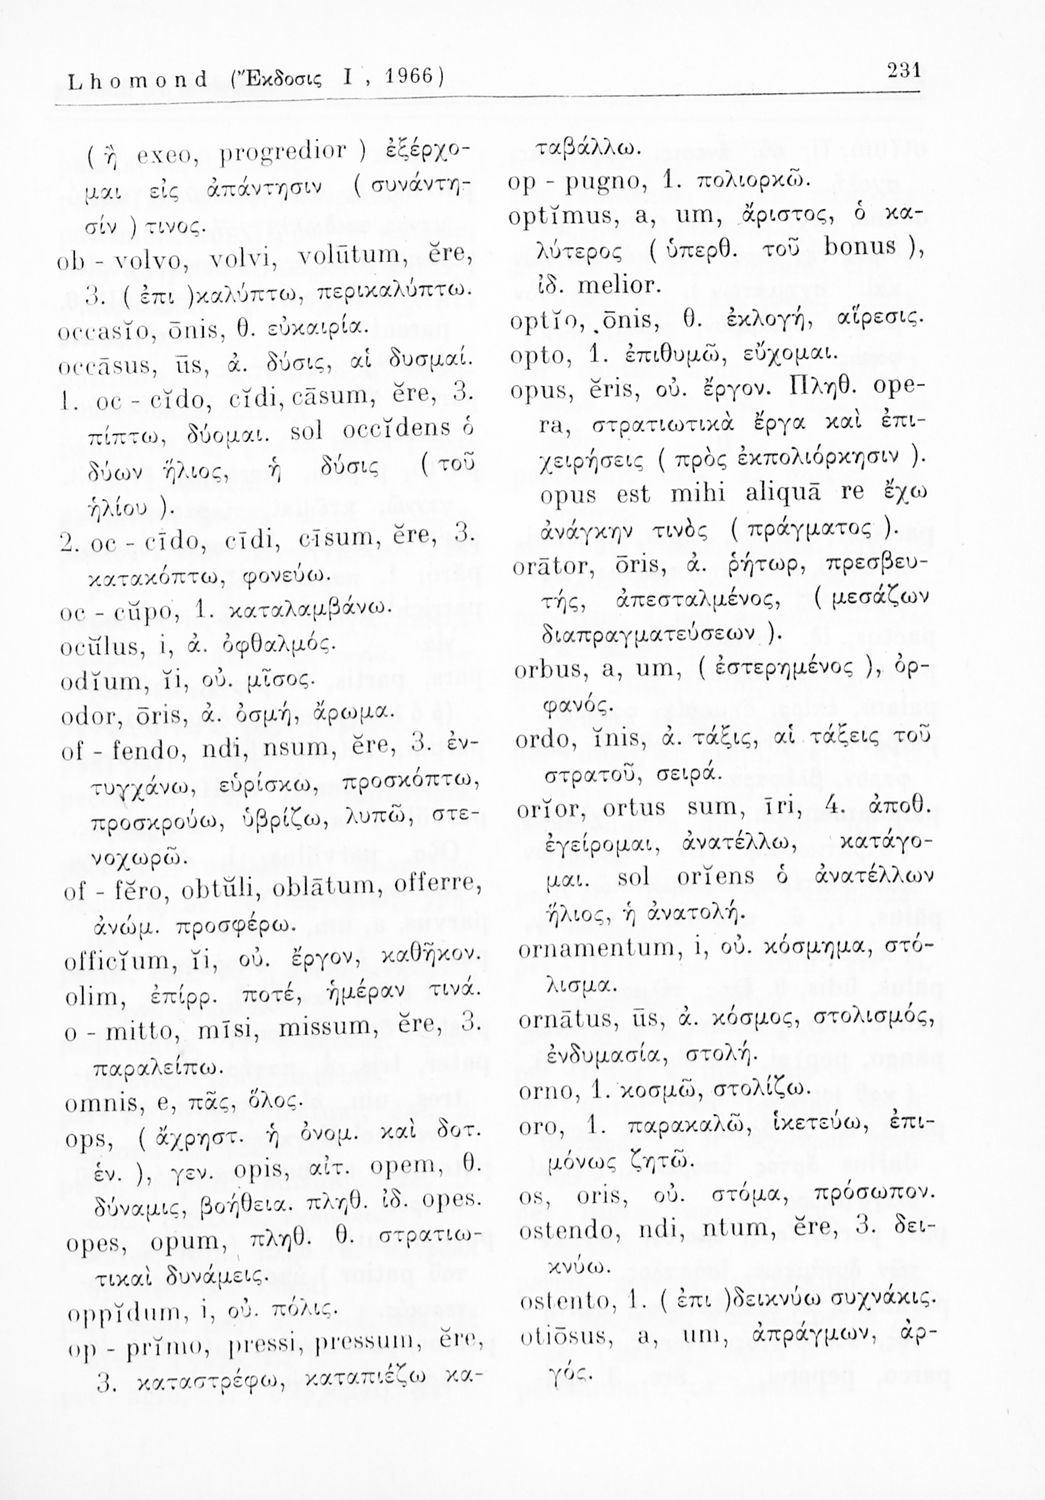 Lhomond (Ἔκδοσις I , 1966)
231
( ἢ exeo, progredior ) ἐξέρχο-
μαι εἰς ἀπάντησιν ( συνάντη-
σίν ) τινος.
ob - volvo, volvi, volūtum, ĕre,
3. ( ἐπι )καλύπτω, περικαλύπτω.
occasĭo, ōnis, θ. εὐκαιρία.
occāsus, ūs, ἀ. δύσις, αἱ δυσμαί.
1. oc - cĭdo, cĭdi, cāsum, ĕre, 3.
πίπτω, δύομαι. sol occĭdens ὁ
δύων ἥλιος, ἡ δύσις ( τοῦ
ἡλίου ).
2. oc - cīdo, cīdi, cīsum, ĕre, 3.
κατακόπτω, φονεύω.
oc - cŭpo, 1. καταλαμβάνω.
ocŭlus, i, ἀ. ὀφθαλμός.
odĭum, ĭi, οὐ. μῖσος.
odor, ōris, ἀ. ὀσμή, ἄρωμα.
of - fendo, ndi, nsum, ĕre, 3. ἐν-
τυγχάνω, εὑρίσκω, προσκόπτω,
προσκρούω, ὑβρίζω, λυπῶ, στε-
νοχωρῶ.
of - fĕro, obtŭli, oblātum, offerre,
ἀνώμ. προσφέρω.
officĭum, ĭi, οὐ. ἔργον, καθῆκον.
olim, ἐπίρρ. ποτέ, ἡμέραν τινά.
o - mitto, mīsi, missum, ĕre, 3.
παραλείπω.
omnis, e, πᾶς, ὅλος.
ops, ( ἄχρηστ. ἡ ὀνομ. καὶ δοτ.
ἑν. ), γεν. opis, αἰτ. opem, θ.
δύναμις, βοήθεια. πληθ. ἰδ. opes.
opes, opum, πληθ. θ. στρατιω-
τικαὶ δυνάμεις.
oppĭdum, i, οὐ. πόλις.
op - prĭmo, pressi, pressum, ĕre,
3. καταστρέφω, καταπιέζω κα-
ταβάλλω.
op - pugno, 1. πολιορκῶ.
optĭmus, a, um, ἄριστος, ὁ κα-
λύτερος ( ὑπερθ. τοῦ bonus ),
ἰδ. melior.
optĭo, ōnis, θ. ἐκλογή, αἵρεσις.
opto, 1. ἐπιθυμῶ, εὔχομαι.
opus, ĕris, οὐ. ἔργον. Πληθ. ope-
ra, στρατιωτικὰ ἔργα καὶ ἐπι-
χειρήσεις ( πρὸς ἐκπολιόρκησιν ).
opus est mihi aliquā re ἔχω
ἀνάγκην τινὸς ( πράγματος ).
orātor, ōris, ἀ. ῥήτωρ, πρεσβευ-
τής, ἀπεσταλμένος, ( μεσάζων
διαπραγματεύσεων ).
orbus, a, um, ( ἐστερημένος ), ὀρ-
φανός.
ordo, ĭnis, ἀ. τάξις, αἱ τάξεις τοῦ
στρατοῦ, σειρά.
orĭor, ortus sum, īri, 4. ἀποθ.
ἐγείρομαι, ἀνατέλλω, κατάγο-
μαι. sol orĭens ὁ ἀνατέλλων
ἥλιος, ἡ ἀνατολή.
ornamentum, i, οὐ. κόσμημα, στό-
λισμα.
ornātus, ūs, ἀ. κόσμος, στολισμός,
ἐνδυμασία, στολή.
orno, 1. κοσμῶ, στολίζω.
oro, 1. παρακαλῶ, ἱκετεύω, ἐπι-
μόνως ζητῶ.
os, oris, οὐ. στόμα, πρόσωπον.
ostendo, ndi, ntum, ĕre, 3. δει-
κνύω.
ostento, 1. ( ἐπι )δεικνύω συχνάκις.
otiōsus, a, um, ἀπράγμων, ἀρ-
γός.